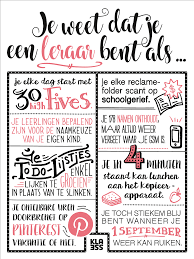 Je weet dat je
een leraar bent als ...
je elke dag start met
30
high
Fives
je elke reclame-
folder scant op
schoolgerief.
je leerlingen bepalend
zijn voor de naamkeuze
van je eigen kind
je namen onthoudt,
maar altijd weer
vergeet waar je
je
To-Do-Lijstjes
in plaats van te
slinken.
je in 4 minuten
staat
lunch
aan het
kopieer-
apparaat.
je ongeveer uren
doorbrengt op
Pinterest
vakantie of niet.
KLA
SSE
je toch stiekem blij
bent wanneer je
1 september
weer kan ruiken.